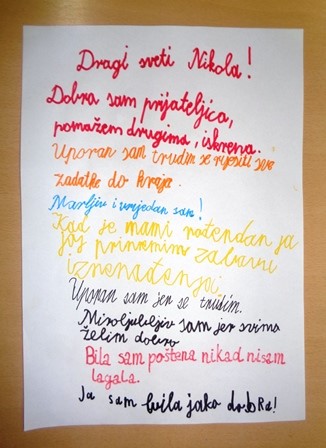 Dragi sveti Nikola!
Dobra sam prijateljica,
pomažem drugima, iskrena.
Uporan sam trudim se riješiti sve
zadatke do kraja.
Marljiv i vrijedan sam!
Kad je mami rođendan ja
joj pripremim zabavu
iznenađenja.
Uporan sam jer se trudim.
Miroljubljiv sam jer svima
želim dobro
Bila sam poštena nikad nisam
lagala.
Ja sam bila jako dobRa!